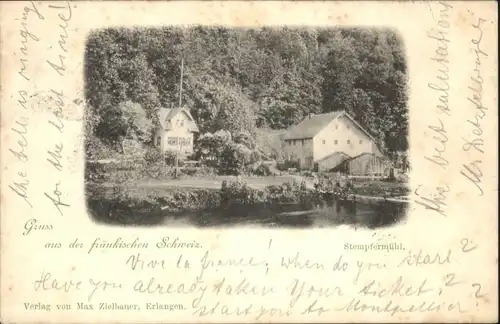 The bell is ringing
for the last time!
Gruss
aus der fränkischen Schweiz.
Stempfermühl.
The best salutations
Vive la france! when do you start?
Have you already taken your ticket?
start you to Montpellier?
Verlag von Max Zielbauer, Erlangen.